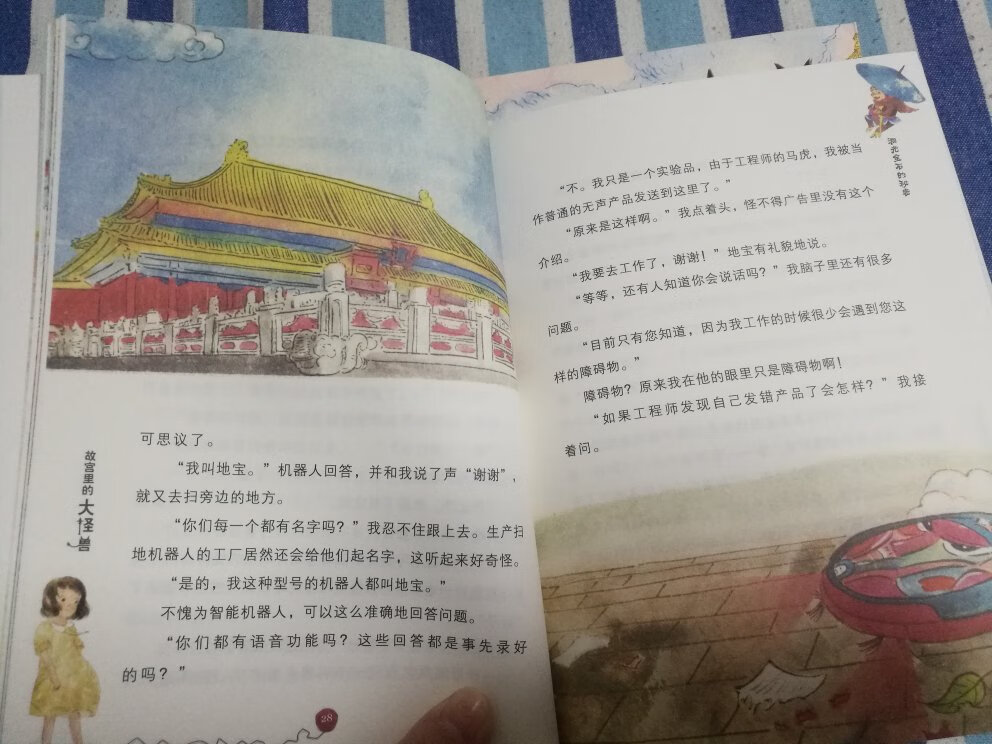 可思议了。
“我叫地宝。”机器人回答，并和我说了声“谢谢”，
就又去扫旁边的地方。
“你们每一个都有名字吗？”我忍不住跟上去。生产扫
地机器人的工厂居然还会给他们起名字，这听起来好奇怪。
“是的，我这种型号的机器人都叫地宝。”
不愧为智能机器人，可以这么准确地回答问题。
“你们都有语音功能吗？这些回答都是事先录好
的吗？”
故宫里的大怪兽
28
“不。我只是一个实验品，由于工程师的马虎，我被当
作普通的无声产品发送到这里了。”
“原来是这样啊。”我点着头，怪不得广告里没有这个
介绍。
“我要去工作了，谢谢！”地宝有礼貌地说。
“等等，还有人知道你会说话吗？”我脑子里还有很多
问题。
“目前只有您知道，因为我工作的时候很少会遇到您这
样的障碍物。”
障碍物？原来我在他的眼里只是障碍物啊！
“如果工程师发现自己发错产品了会怎样？”我接
着问。